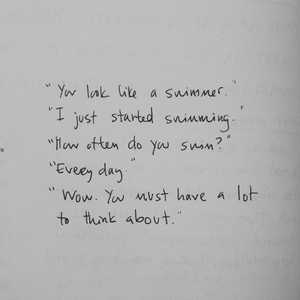 "You look like a swimmer."
"I just started swimming."
"How often do you swim?"
"Every day"
"Wow. You must have a lot
to think about."